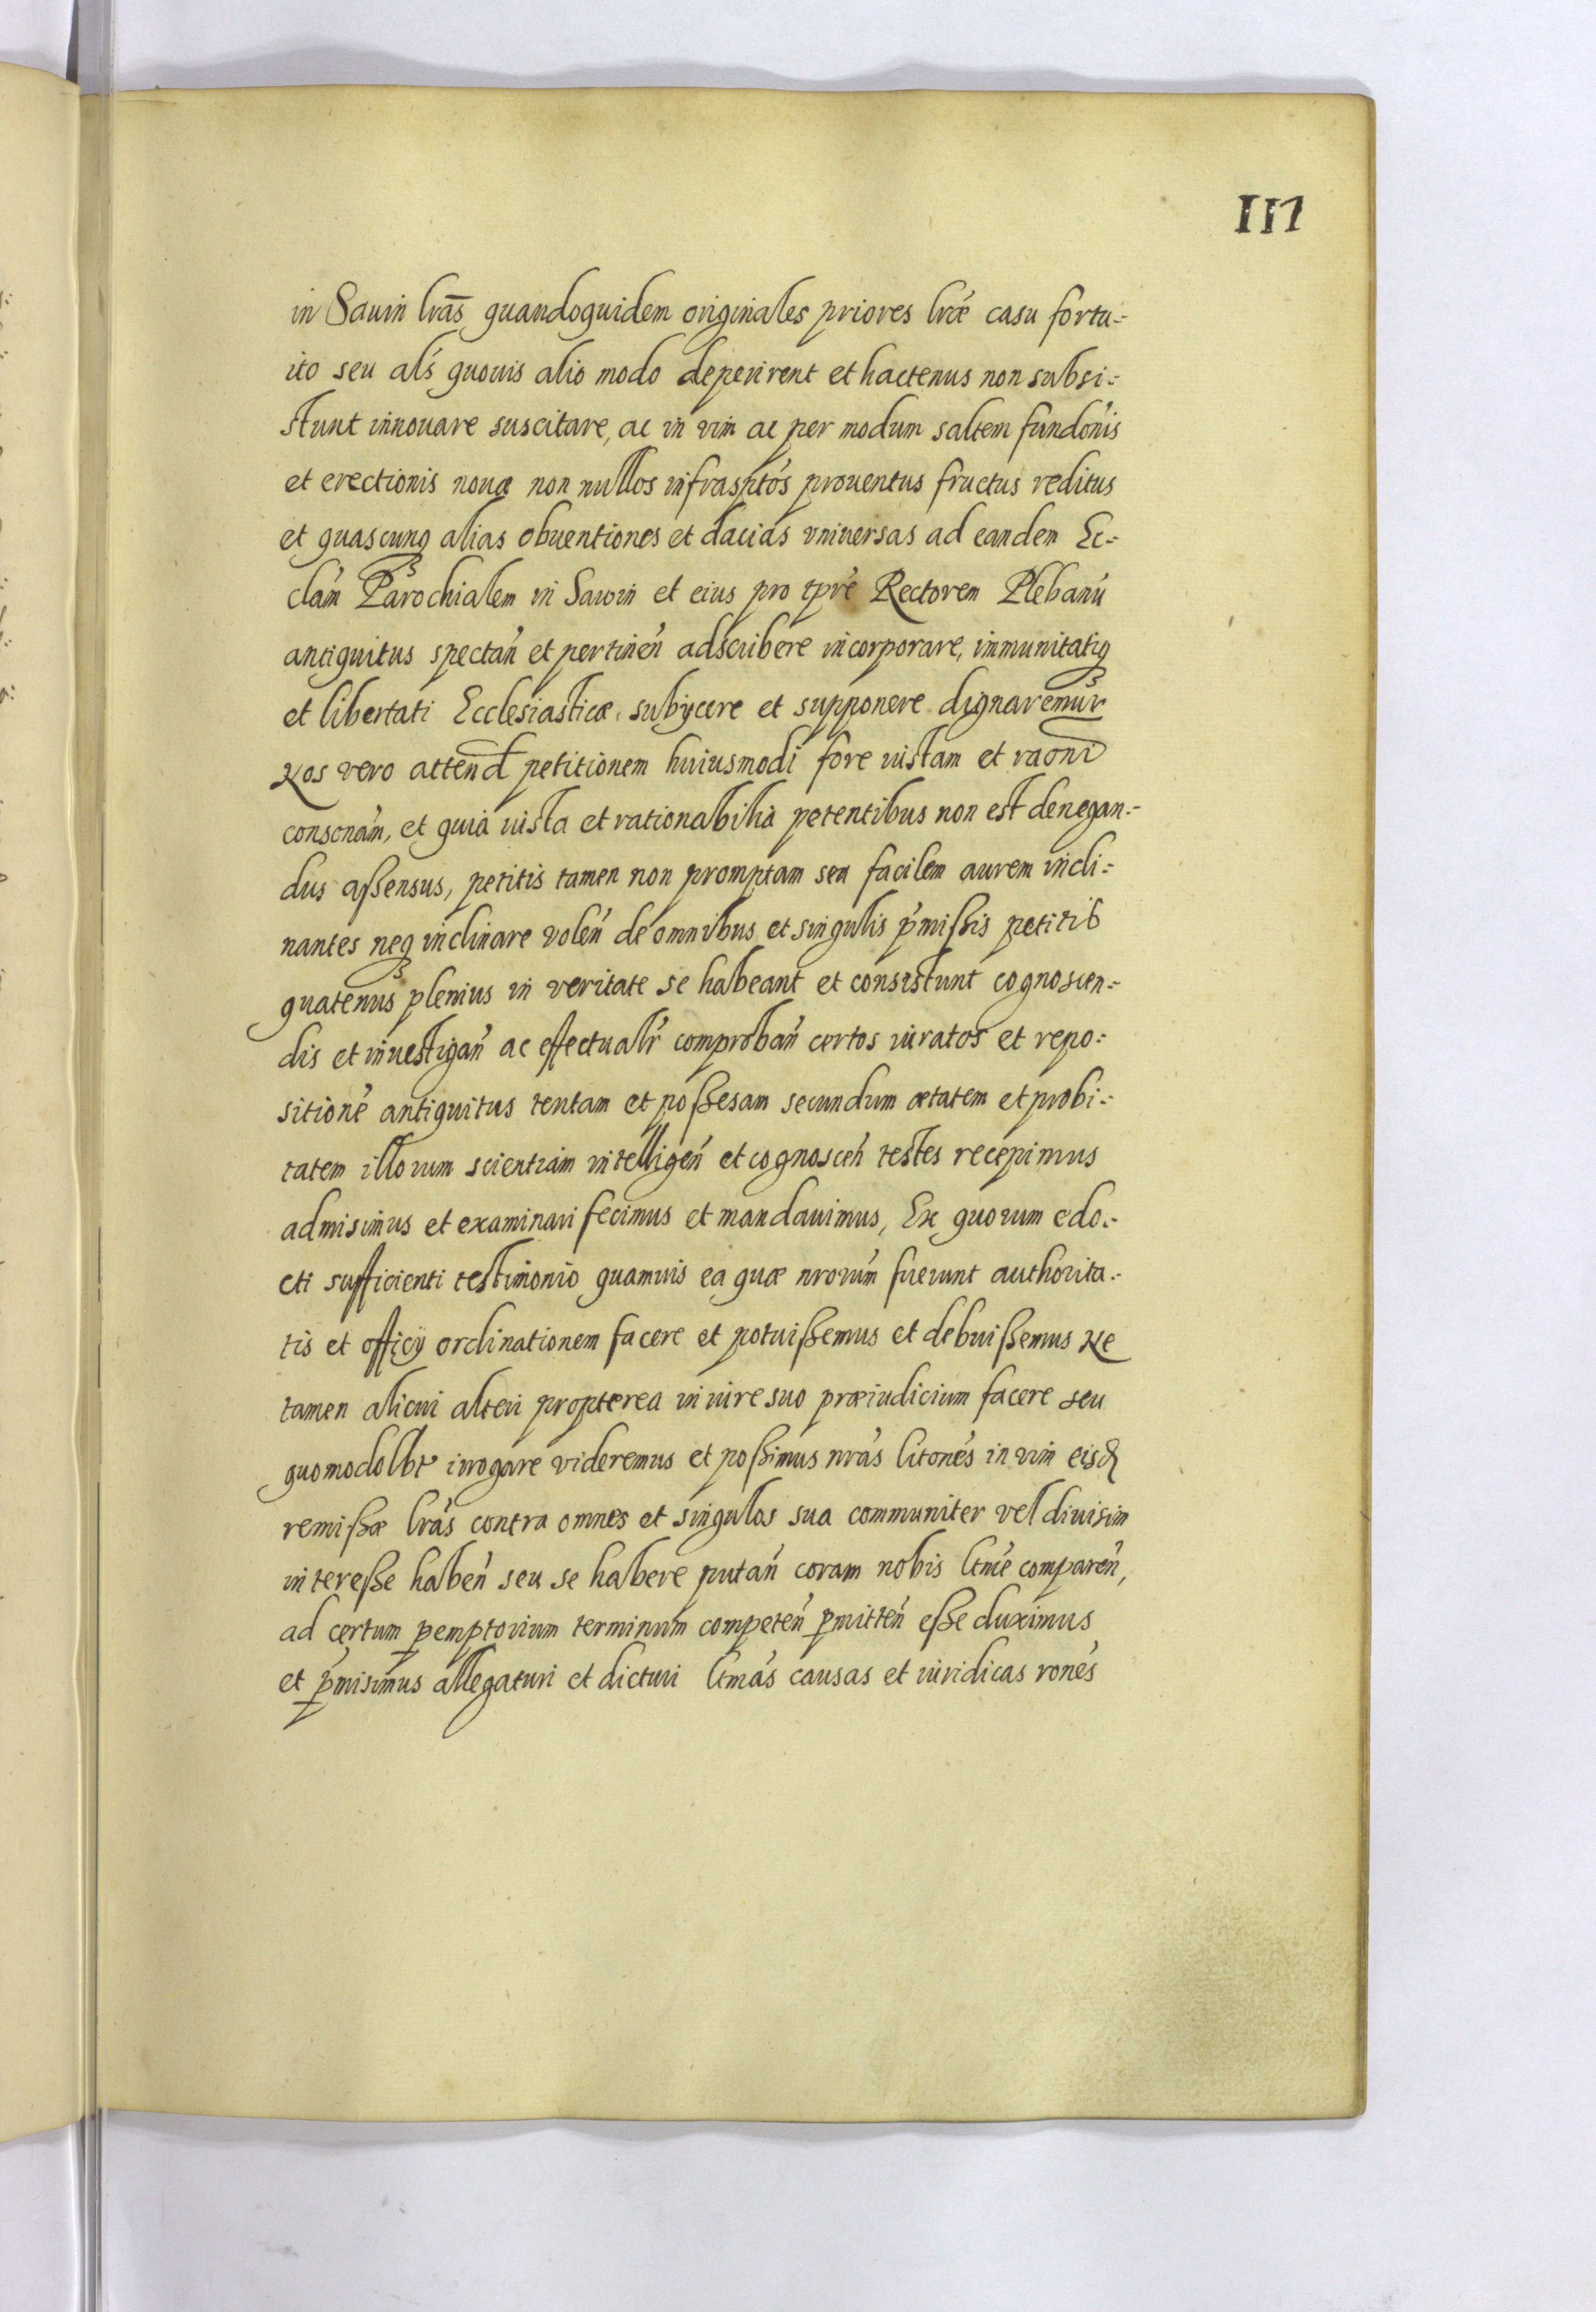 117
in Sauin lrãs quandoquidem originales priores lræ casu fortu:
ito seu alś quouis alio modo deperirent et hactenus non subsi:
stunt innouare suscitare, ac in vim ac per modum saltem fundońis
et erectionis nouæ non nullos infrasptós prouentus fructus reditus
et quascunq alias obuentiones et dacias vniuersas ad eandem Ec:
clám Parochialem in Sawin et eius pro tpŕe Rectorem Plebanú
antiquitus spectań et pertineń adscribere incorporare, immunitatiq
et libertati Ecclesiasticæ subijcere et supponere dignaremur
Nos vero attend petitionem huiusmodi fore iustam et raoni
consonám, et quia iusta et rationabilia petentibus non est denegan:
dus aßensus, petitis tamen non promptam seu facilem aurem incli:
nantes neq inclinare voleń de omnibus et singulis p̄mißis petitis
quatenus plenius in veritate se habeant et consistunt cognoscen:
dis et inuestigań ac effectualŕ comprobań certos iuratos et repo:
sitioné antiquitus tentam et poßesam secundum ætatem et probi:
tatem illorum scientiam intelligeń et cognosceń testes recepimus
admisimus et examinari fecimus et mandauimus, Ex quorum edo:
cti sufficienti testimonio quamuis ea quæ nrorúm fuerunt authorita:
tis et officij ordinationem facere et potuißemus et debuißemus Ne
tamen alicui alteri propterea in iure suo præiudicium facere seu
quomodolbt irrogare videremus et poßimus nrás litonés in vim eisd
remißæ lrás contra omnes et singulos sua communiter vel diuisim
intereße habeń seu se habere putań coram nobis ltmé compareń,
ad certum p̱emptorium terminum competeń p̱mitteń eße duximus
et p̱misimus allegaturi et dicturi ltmás causas et iuridicas ronés